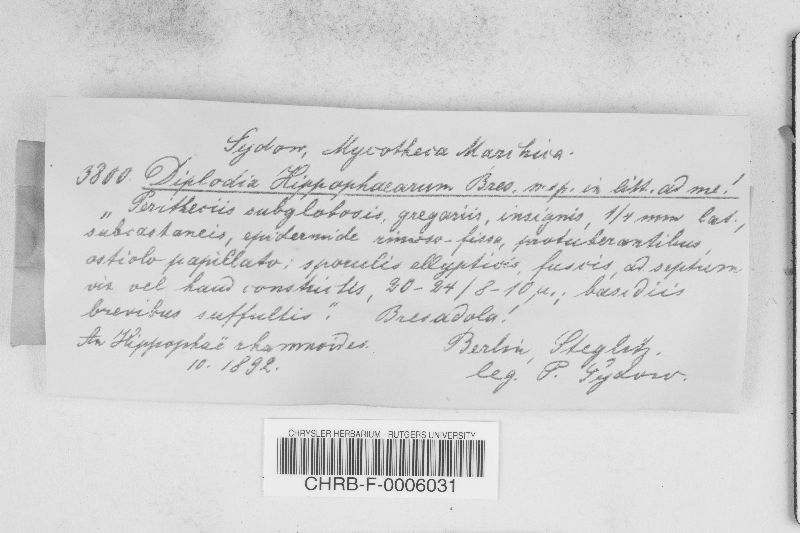 Sydow, Mycotheca Marchica.
3800. Diplodia Hippophaearum Bres. n. sp. in litt. ad me!
„Peritheciis subglobosis, gregariis, insignis, 1/4 mm lat.,
subcastaneis, epidermide rimoso-fissa, protuberantibus,
ostiolo papillato; sporulis ellypticis, fuscis, ad septum
vix vel haud constrictis, 20-24/8-10 µ., basidiis
brevibus suffultis". Bresadola!
An Hippophaë rhamnoides. Berlin, Steglitz.
10. 1892. leg. P. Sydow.
CHRYSLER HERBARIUM - RUTGERS UNIVERSITY
CHRB-F-0006031